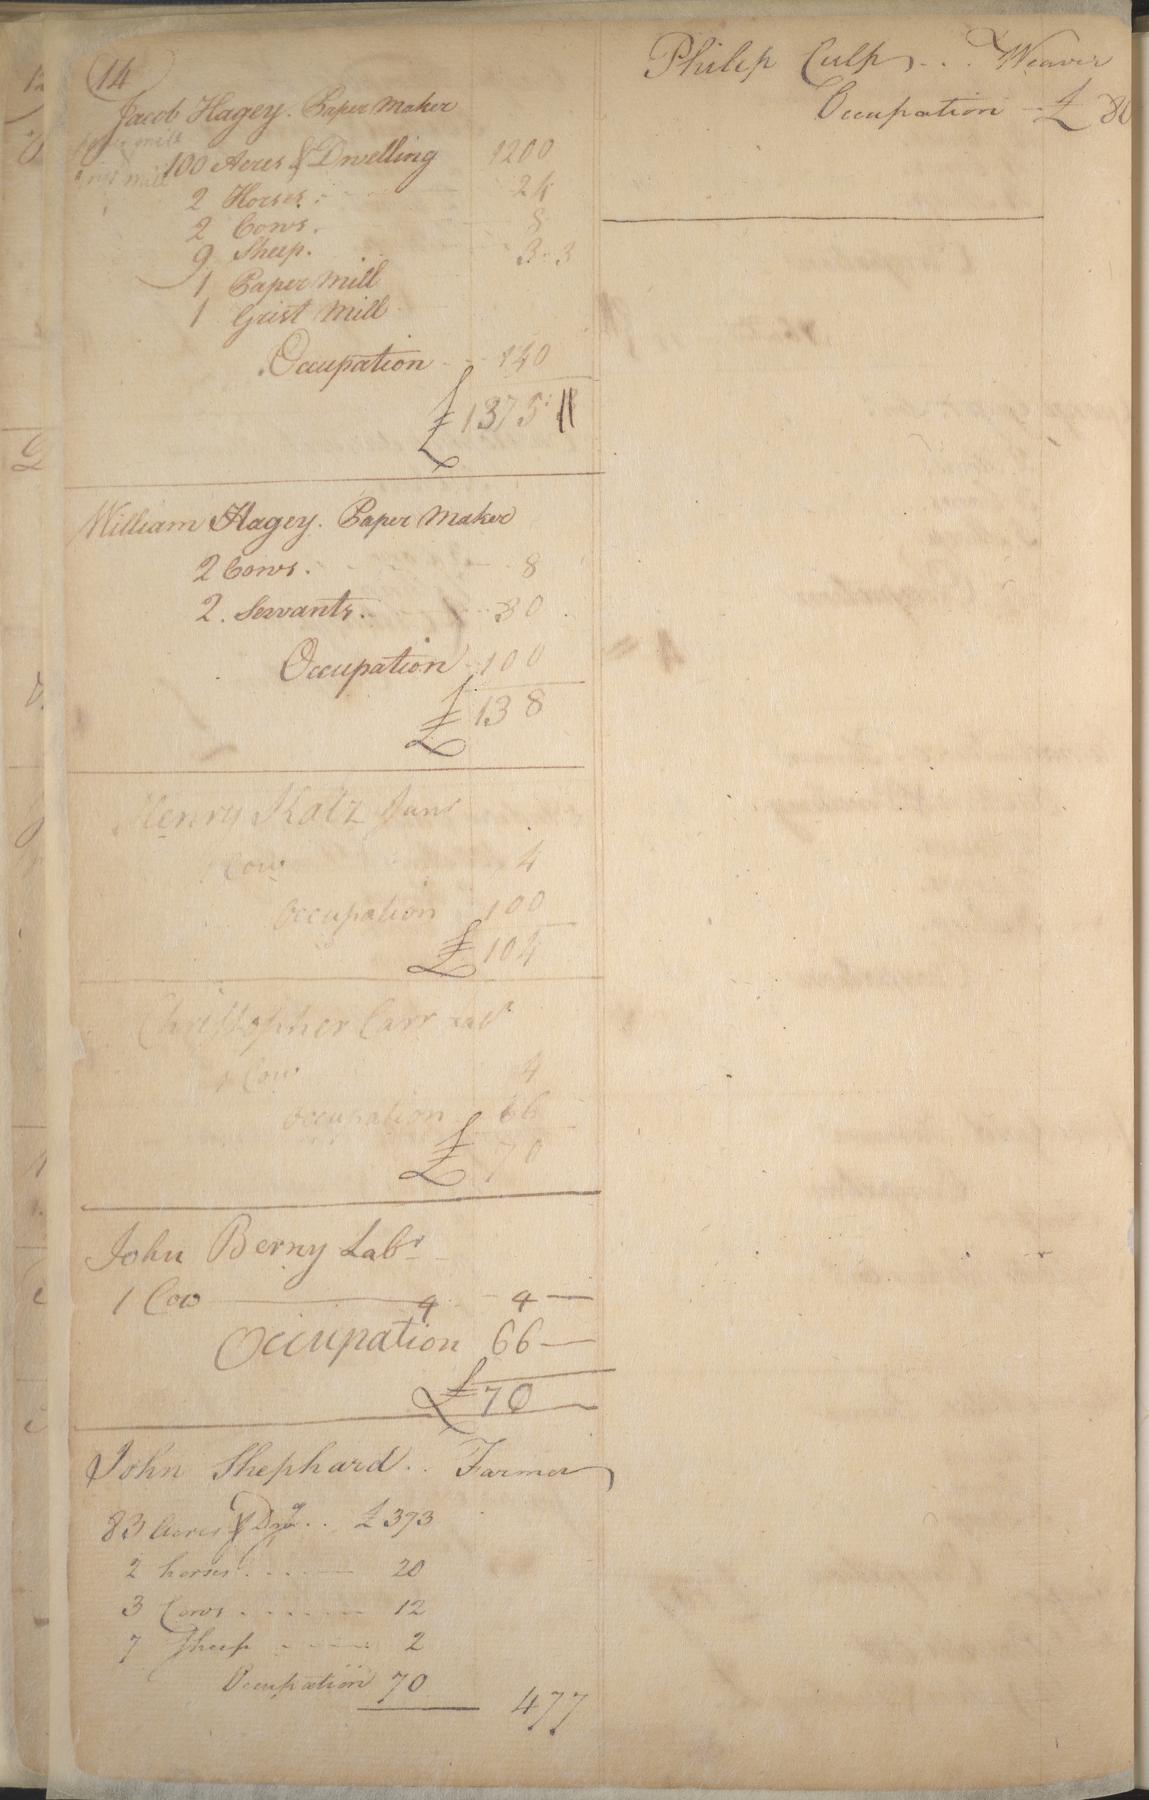 14
Jacob Hagey. Paper Maker
100 Acres & Dwelling 1200
2 Horses 24
2 Cows. 8
9 Sheep. 3..3
1 Paper Mill
1 Grist Mill
Occupation 140
£ 1375
William Hagey. Paper Maker
2 Cows. 8
2. Servants. 30
Occupation 100
£ 138
Henry Katz Junr
Cow 4
Occupation 100
£ 104
Christopher Carr Labr
1 Cow 4
Occupation 66
£ 70
John Berny Labr
1 Cow 4 4
Occupation 66
£ 70
John Shephard.. Farmer
83 Acres & Dwg.. £ 373
2 horses 20
3 Cows 12
7 Sheep 2
Occupation 70
477
Philip Culp... Weaver
Occupation £ 80